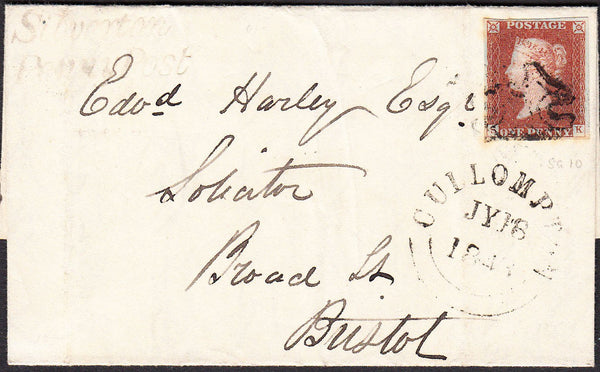 Silverton
Penny Post
POSTAGE
ONE PENNY
S K
Edwd Harley Esqr
SG 10
Solicitor
CULLOMPTON
JY 18
184
Broad St
Bristol